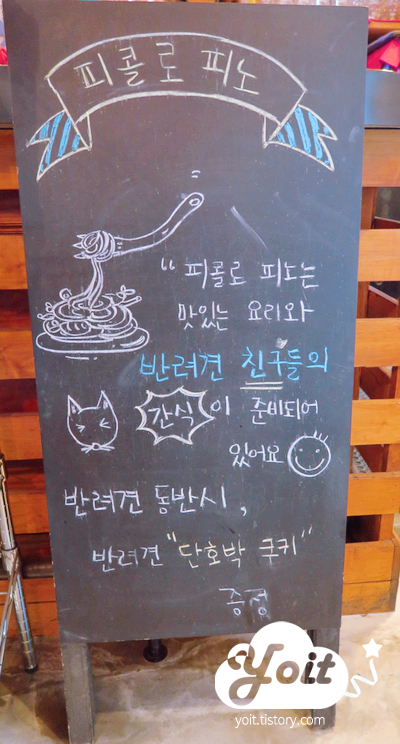 피콜로 피노
“ 피콜로 피노는
맛있는 요리와
반려견 친구들의
간식이 준비되어
있어요
반려견 동반시,
반려견 "단호박 쿠키"
증정
Yoit
yoit.tistory.com